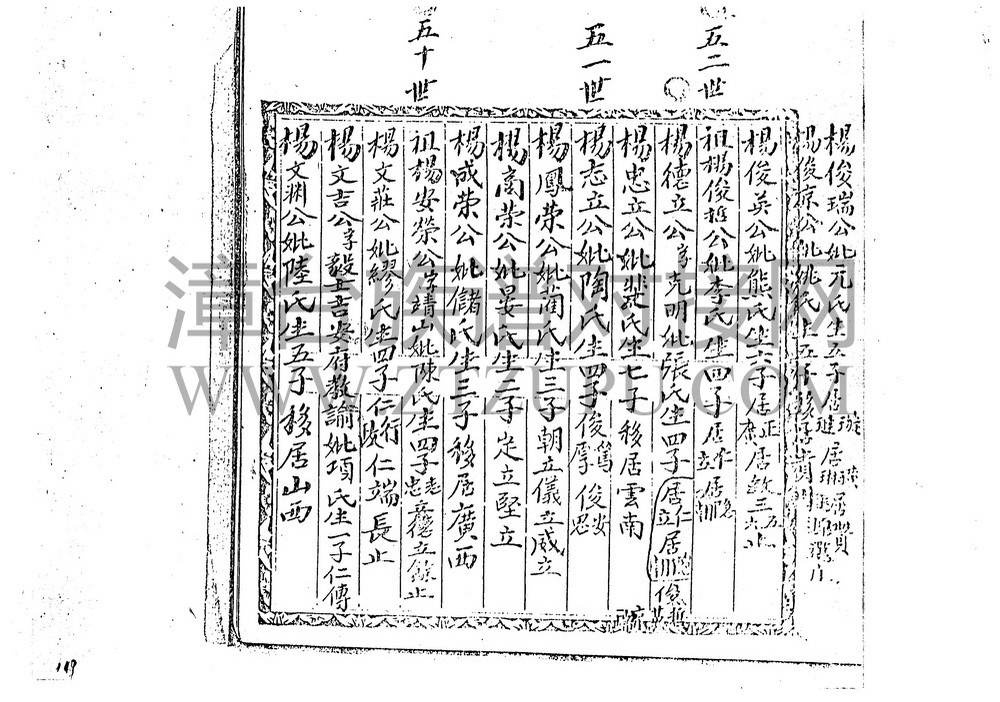 楊文淵公妣陸氏生五子移居山西
楊文吉公字毅上吉安府教諭妣項氏生一子仁傳
楊文莊公妣繆氏生四子仁行仁政仁端長止
五十世
祖楊安榮公字靖山妣陳氏生四子志立忠立德立餘止
楊成榮公妣儲氏生三子移居廣西
楊高榮公妣晏氏生二子定立堅立
楊鳳榮公妣藺氏生三子朝立儀立威立
五一世
楊志立公妣陶氏生四子俊篤俊厚俊安俊思
楊忠立公妣裴氏生七子移居雲南
楊德立公字克明妣張氏生四子居仁居立居隐居訓俊哲
五二世
祖楊俊哲公妣李氏生四子居仁居立居隐居訓
楊俊英公妣熊氏生六子居正居廣居敬三五六止
楊俊琼公妣姚氏生五子移居貴
楊俊瑞公妣元氏生五子居璇居璉居琳居
119
漳台族谱对接网
WWW.ZTZUPU.COM